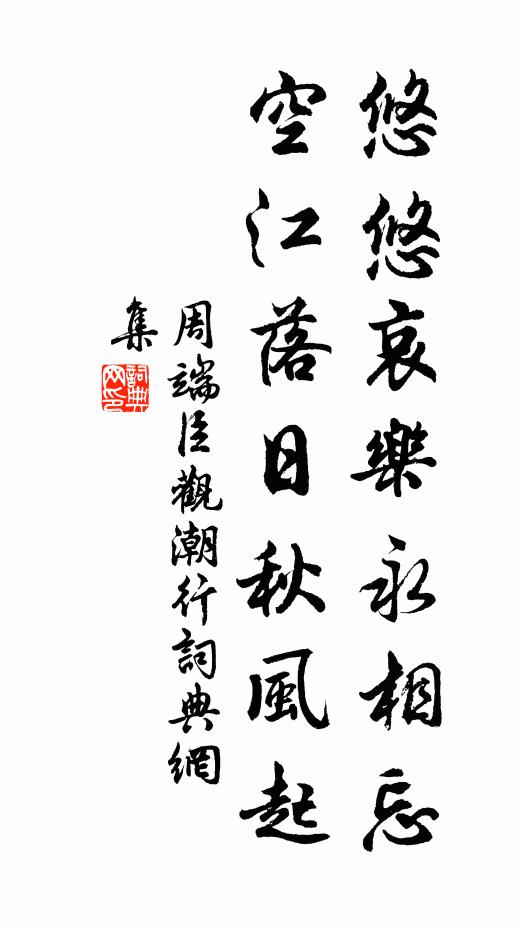 悠悠哀樂永相忘
空江落日秋風起
周端臣觀潮行詞典網
集
詞典网印